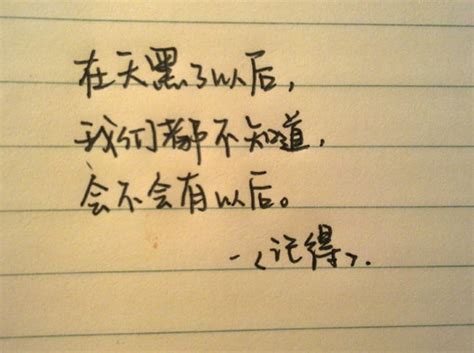 在天黑了以后，
我们都不知道，
会不会有以后。
-《记得》.